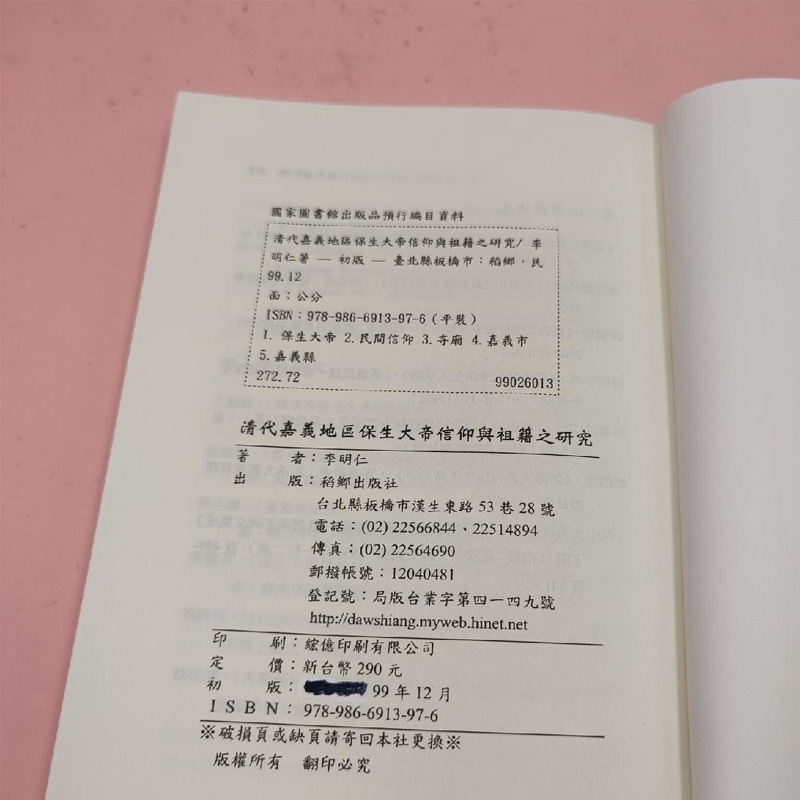 國家圖書館出版品預行編目資料
清代嘉義地區保生大帝信仰與祖籍之研究/ 李
明仁著 — 初版 — 臺北縣板橋市：稻鄉，民
99.12
面：公分
ISBN：978-986-6913-97-6（平裝）
1. 保生大帝 2.民間信仰 3.寺廟 4.嘉義市
5.嘉義縣
272.72 99026013
清代嘉義地區保生大帝信仰與祖籍之研究
著 者：李明仁
出 版：稻鄉出版社
台北縣板橋市漢生東路 53 巷 28 號
電話：(02) 22566844、22514894
傳真：(02) 22564690
郵撥帳號：12040481
登記號：局版台業字第四一四九號
http://dawshiang.myweb.hinet.net
印 刷：綋億印刷有限公司
定 價：新台幣 290 元
初 版： 99 年 12 月
ＩＳＢＮ：978-986-6913-97-6
※破損頁或缺頁請寄回本社更換※
版權所有 翻印必究